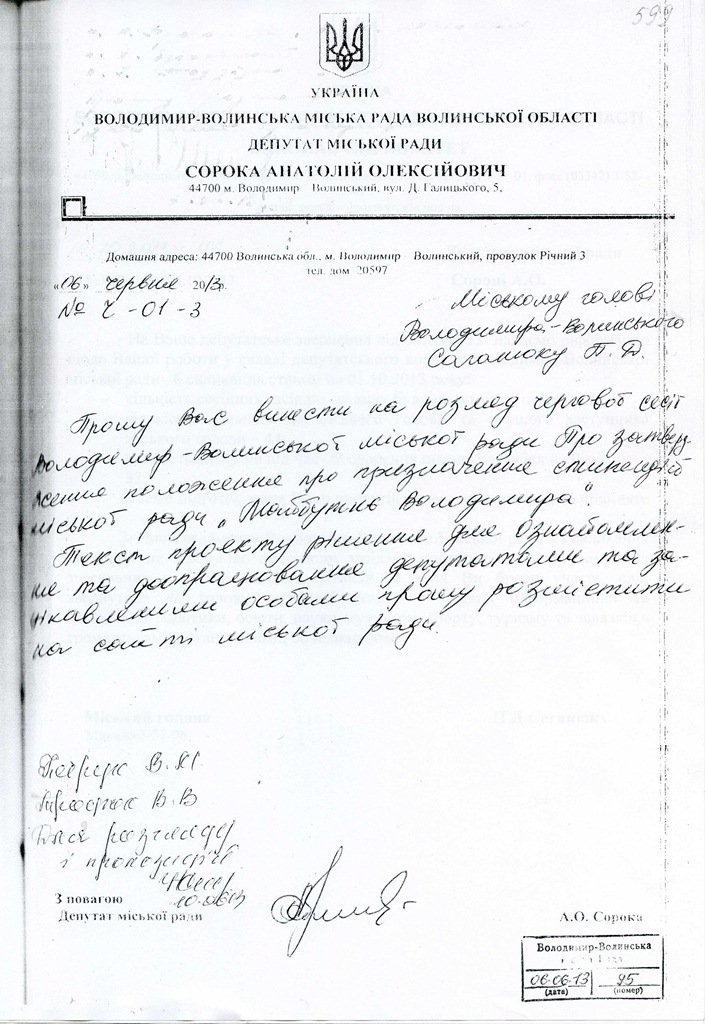 599
УКРАЇНА
ВОЛОДИМИР-ВОЛИНСЬКА МІСЬКА РАДА ВОЛИНСЬКОЇ ОБЛАСТІ
ДЕПУТАТ МІСЬКОЇ РАДИ
СОРОКА АНАТОЛІЙ ОЛЕКСІЙОВИЧ
44700 м. Володимир Волинський, вул. Д. Галицького, 5,
Домашня адреса: 44700 Волинська обл., м. Володимир Волинський, провулок Річний 3
тел. дом 20597
«06» червня 2013р.
№ Ч-01-3
Міському голові
Володимира-Волинського
Саганюку П. Д.
Прошу Вас винести на розгляд чергової сесії
Володимир-Волинської міської ради Про затверд
ження положення про призначення стипендій
міської ради „Майбутнє Володимира".
Текст проекту рішення для ознайомлен-
ня та доопрацювання депутатами та за-
цікавленими особами прошу розмістити
на сайті міської ради.
В.
В.В
Для розгляду
і пропозицій
10.06.13
З повагою
Депутат міської ради
А.О. Сорока
Володимир-Волинська
рада
06.06.13 95
(дата) (номер)